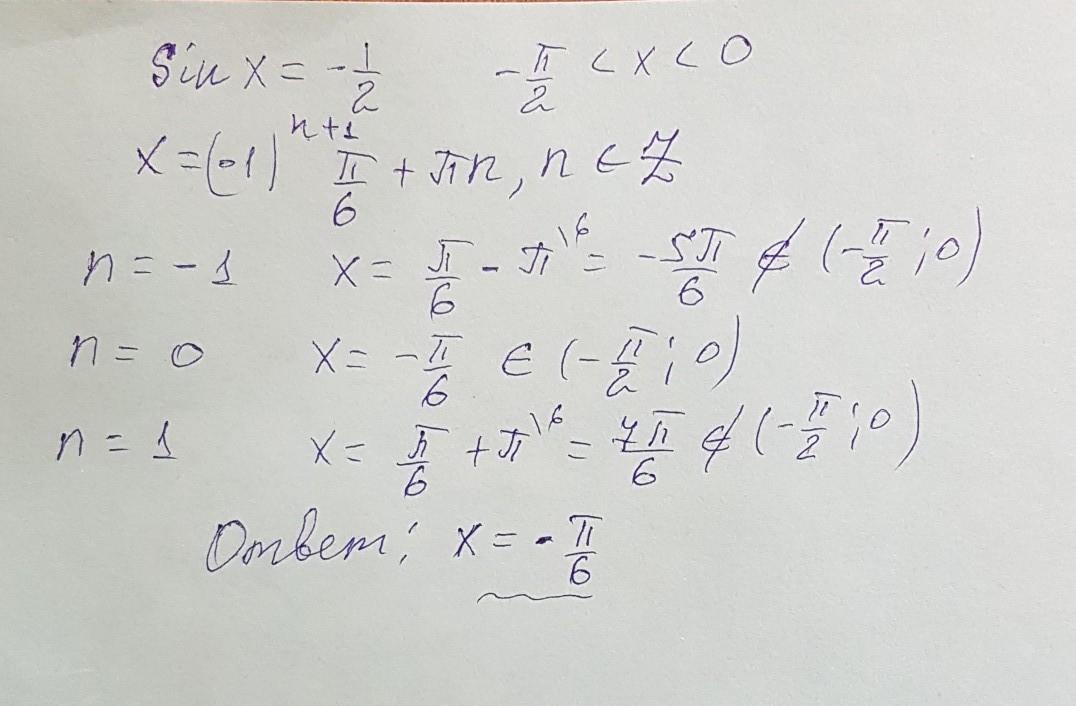 Sin x = -1/2    -π/2 < x < 0
x = (-1)^(n+1) π/6 + πn, n ∈ Z
n = -1    x = π/6 - π\6 = -5π/6 ∉ (-π/2; 0)
n = 0    x = -π/6 ∈ (-π/2; 0)
n = 1    x = π/6 + π\6 = 7π/6 ∉ (-π/2; 0)
Ответ: x = -π/6